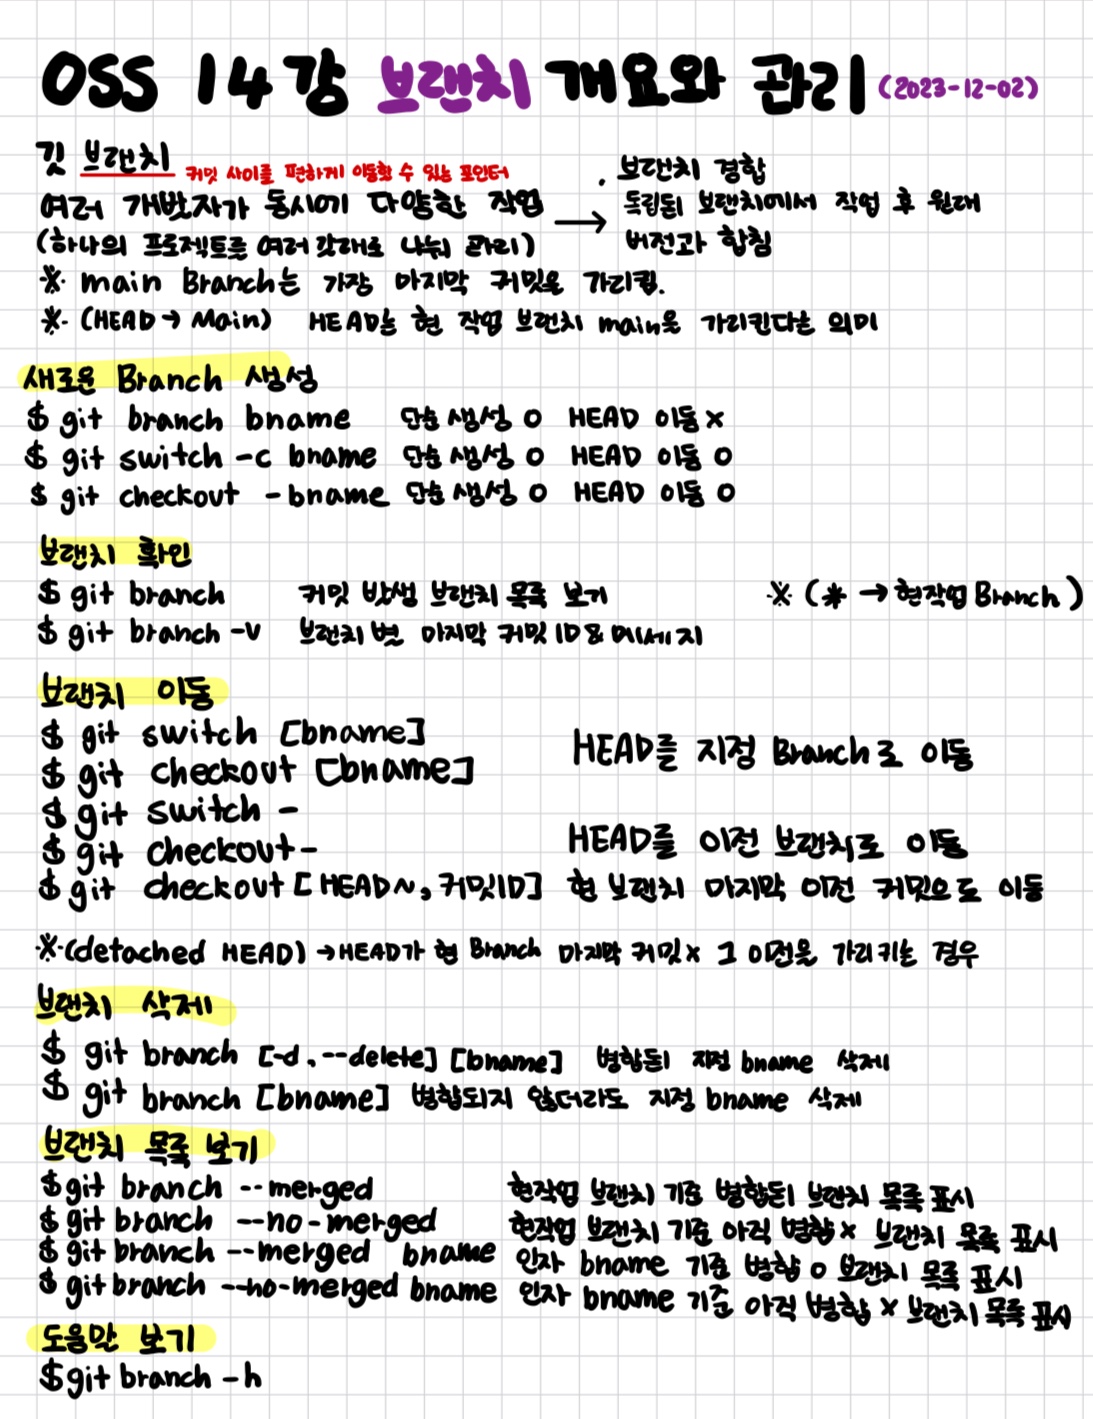 OSS 14강 브랜치 개요와 관리 (2023-12-02)
깃 브랜치 커밋 사이를 편하게 이동할 수 있는 포인터
여러 개발자가 동시에 다양한 작업
(하나의 프로젝트를 여러 갈래로 나눠 관리)
→ . 브랜치 결합
독립된 브랜치에서 작업 후 원래
버전과 합침
※ main Branch는 가장 마지막 커밋을 가리킴.
※ (HEAD → Main) HEAD는 현 작업 브랜치 main을 가리킨다는 의미
새로운 Branch 생성
$ git branch bname 단순 생성 O HEAD 이동 x
$ git switch -c bname 단순 생성 O HEAD 이동 O
$ git checkout -bname 단순 생성 O HEAD 이동 O
브랜치 확인
$ git branch 커밋 발생 브랜치 목록 보기 ※ (* → 현작업 Branch)
$ git branch -v 브랜치별 마지막 커밋 ID & 메세지
브랜치 이동
$ git switch [bname]
$ git checkout [bname]
HEAD를 지정 Branch로 이동
$ git switch -
$ git checkout -
HEAD를 이전 브랜치로 이동
$ git checkout [HEAD~, 커밋ID] 현 브랜치 마지막 이전 커밋으로 이동
※(detached HEAD) → HEAD가 현 Branch 마지막 커밋 x 그 이전을 가리키는 경우
브랜치 삭제
$ git branch [-d, --delete] [bname] 병합된 지정 bname 삭제
$ git branch [bname] 병합되지 않더라도 지정 bname 삭제
브랜치 목록 보기
$ git branch --merged 현작업 브랜치 기준 병합된 브랜치 목록 표시
$ git branch --no-merged 현작업 브랜치 기준 아직 병합 x 브랜치 목록 표시
$ git branch --merged bname 인자 bname 기준 병합 o 브랜치 목록 표시
$ git branch --no-merged bname 인자 bname 기준 아직 병합 x 브랜치 목록 표시
도움말 보기
$ git branch -h